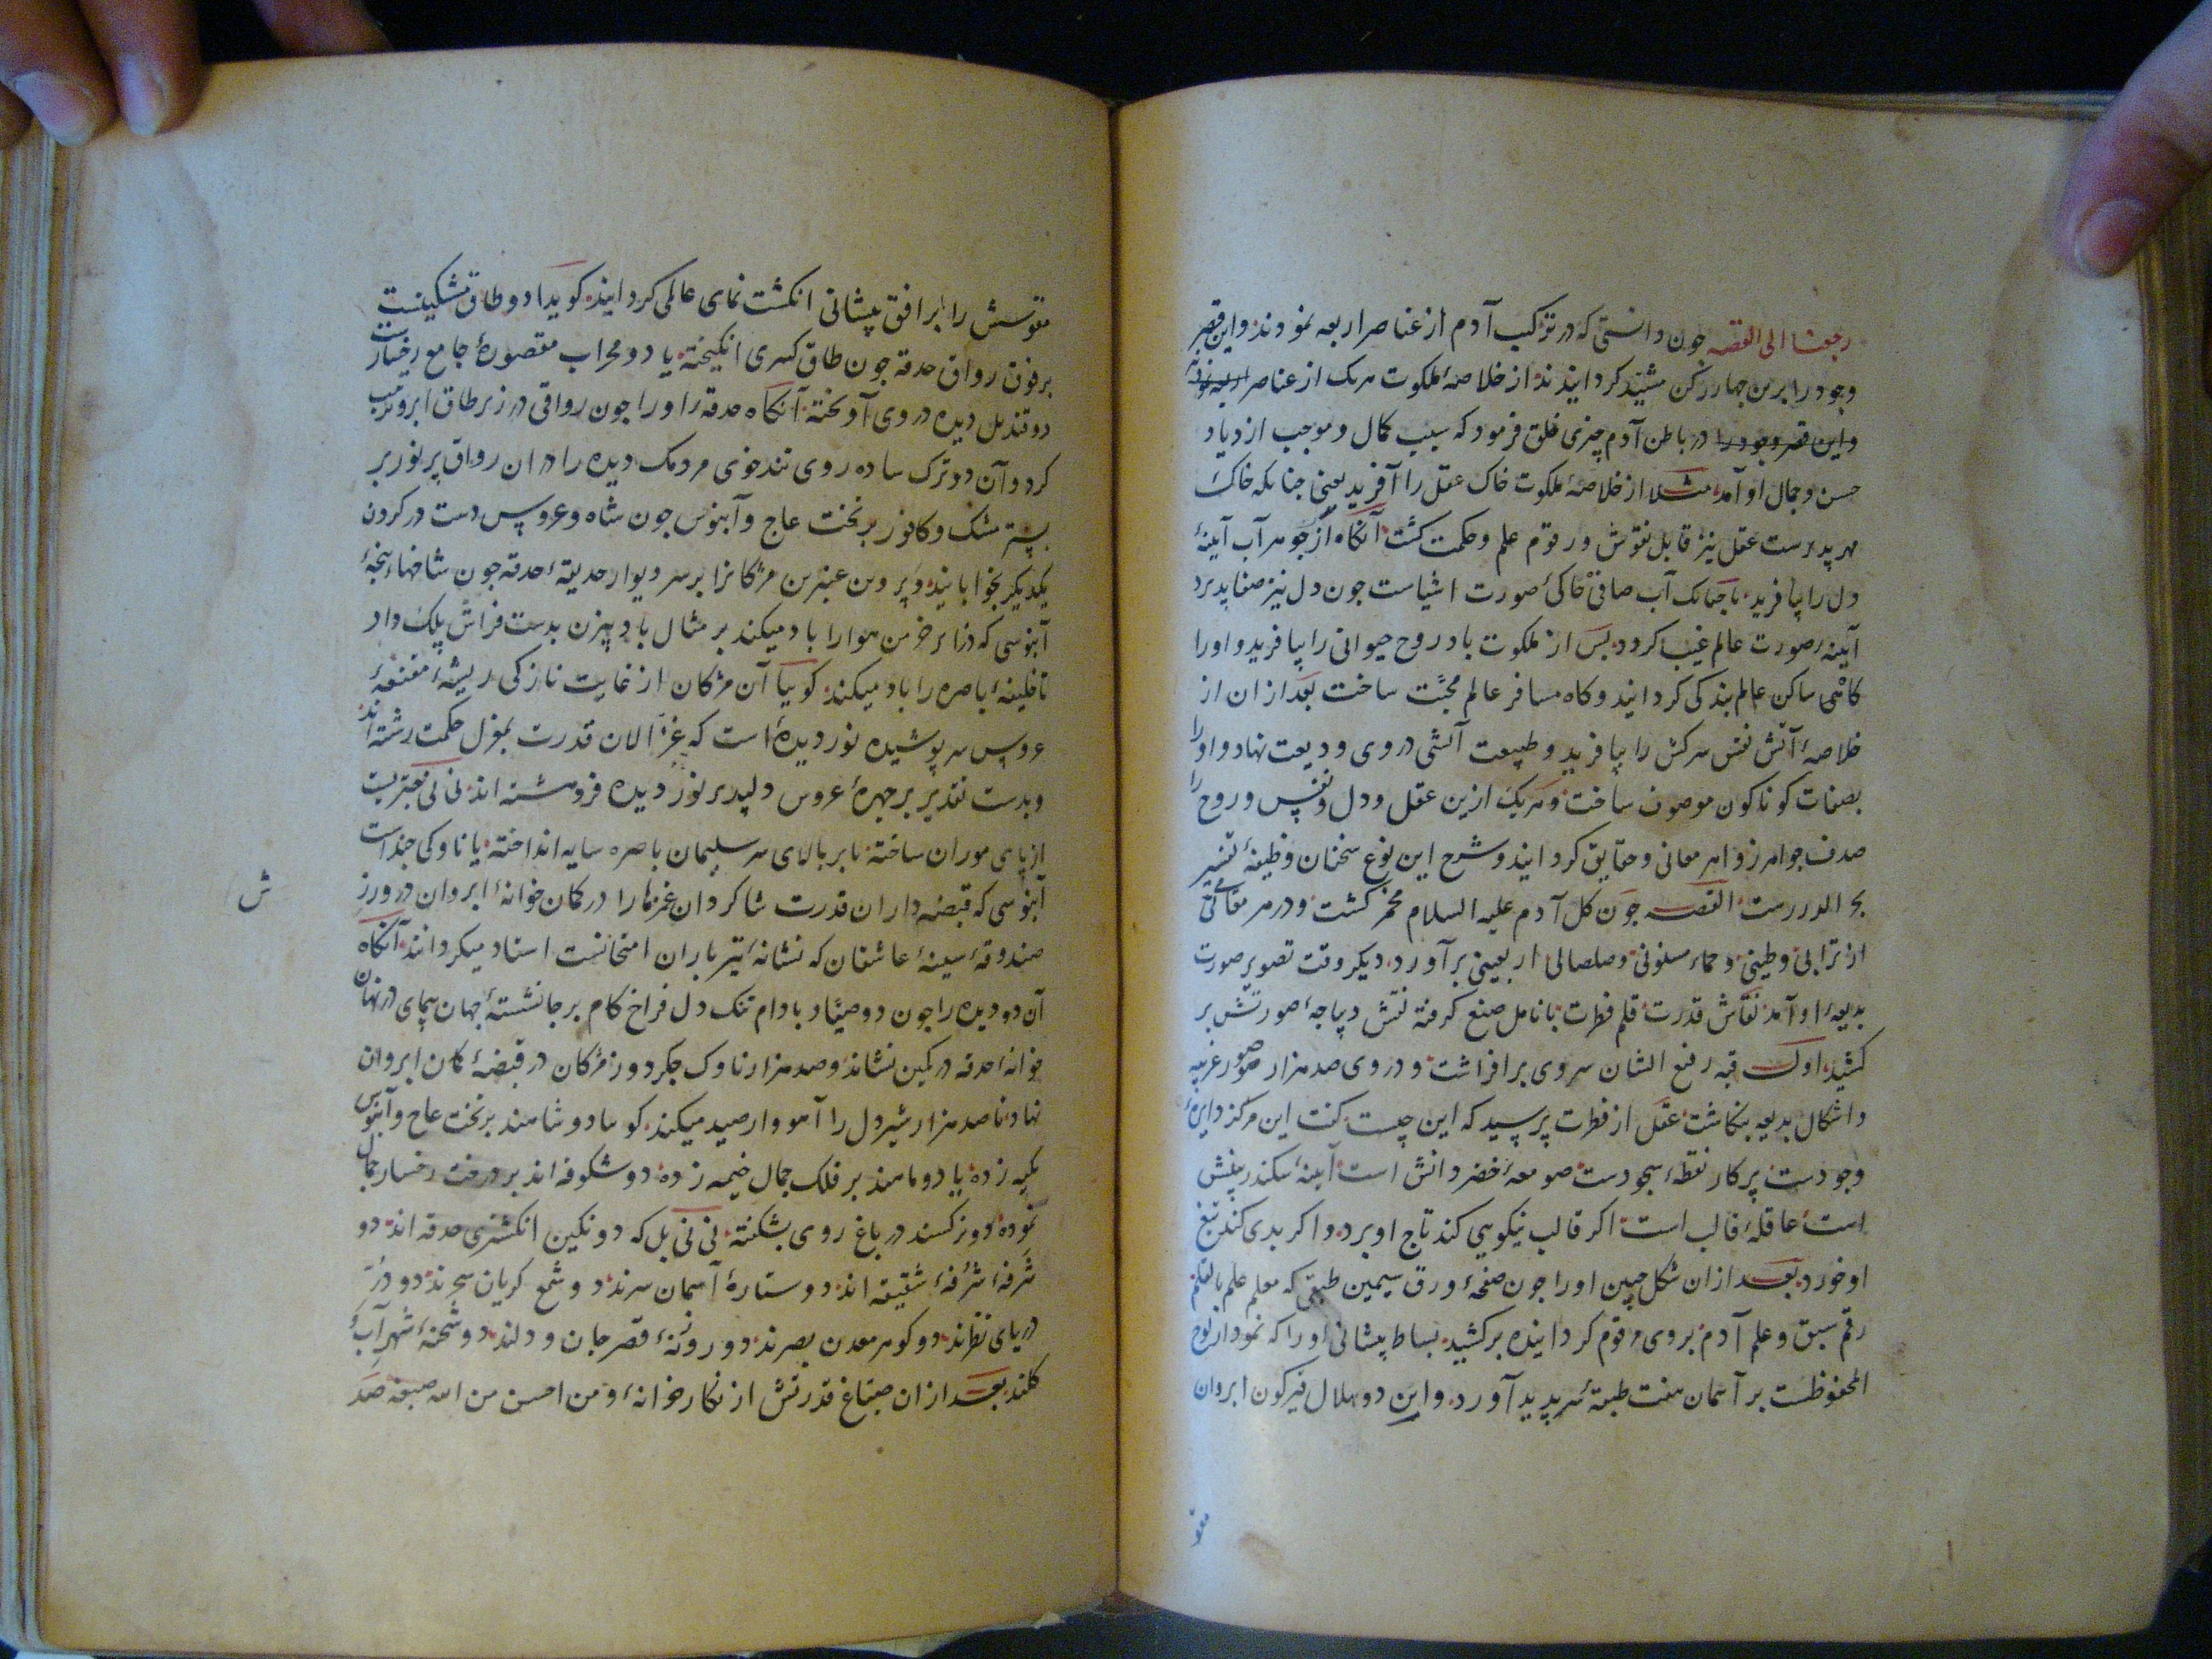 رجعنا الی القصه جون دانستی که در ترکیب آدم از عناصر اربعه نمودند و این قصر
وجود را برین جهار رکن مشید کردانیدند از خلاصهٔ ملکوت هر یک از عناصر اربعه
و این قصر وجود را در باطن آدم چیزی خلق فرمود که سبب کمال و موجب ازدیاد
حسن و جمال او آمد مثلا از خلاصهٔ ملکوت خاک عقل را آفرید یعنی جنانکه خاک
مهر پذیرست عقل نیز قابل نقوش و رقوم علم و حکمت کشت آنکاه از جوهر آب آینهٔ
دل را بیافرید تا جنانک آب صافی حاکیٔ صورت اشیاست جون دل نیز صفا پذیرد
آیینهٔ صورت عالم غیب کردد بس از ملکوت باد روح حیوانی را بیافرید و او را
کاهی ساکن عالم بندکی کردانید و کاه مسافر عالم محبّت ساخت بعد از ان از
خلاصهٔ آتش نفس سرکش را بیافرید و طبیعت آتشی در وی ودیعت نهاد و او را
بصفات کوناکون موصوف ساخت و هر یک ازین عقل و دل و نفس و روح را
صدف جواهر زواهر معانی و حقایق کردانید و شرح این نوع سخنان وظیفهٔ تفسیر
بحر الدررست القصه جون کل آدم علیه السلام مخمر کشت و در هر مقامی
از ترابی و طینی و حماء مسنونی و صلصالی اربعینی برآورد دیکر وقت تصویر صورت
بدیعهٔ او آمد نقاش قدرت قلم فطرت بانامل صنع کرفته نقش دیباجهٔ صورتش بر
کشید اول قبه رفیع الشان سر وی برافراشت و در وی صد هزار صور غریبه
و اشکال بدیعه بنکاشت عقل از فطرت پرسید که این چیست کفت این مرکز دایرهٔ
وجودست پرکار نقطهٔ سجودست صومعهٔ خضر دانش است آیینهٔ سکندر بینش
است عاقلهٔ قالب است اکر قالب نیکویی کند تاج او برد و اکر بدی کند تیغ
او خورد بعد از ان شکل جبین او را جون صفحهٔ ورق سیمین طبقی که معلم علم بالقلم
رقم سبق و علم آدم بر وی مرقوم کردانیده برکشید بساط پیشانی او را که نمودار لوح
المحفوظست بر آسمان هفت طبقهٔ سر پدید آورد و این دو هلال قیرکون ابروان
مقو
مقوسش را بر افق پیشانی انکشت نمای عالمی کردانید کویدا دو طاق مشکینست
بر فوق رواق حدقه جون طاق کسری انکیخته یا دو محراب مقصورهٔ جامع رخسارست
دو قندیل دیده در وی آویخته آنکاه حدقه را و را جون رواقی در زیر طاق ابرو ترتیب
کرد و آن دو ترک ساده روی تندخوی مردمک دیده را در ان رواق پر نور بر
بستر مشک و کافور بر تخت عاج و آبنوس جون شاه و عروس دست در کردن
یکدیکر بخوابانید و پروین عنبرین مژکانرا بر سر دیوار حدیقهٔ حدقه جون شاخهاء پنجهٔ
آبنوسی که در برابر خرمن هوا را باد میکند بر مثال باد بیزن بدست فراش پلک داد
تا خلیفهٔ باصره را باد میکند کوییا آن مژکان از غایت نازکی ریشهٔ مقنعهٔ
عروس سر پوشیده نور دیده است که غزّالان قدرت بمغزل حکمت رشته اند
و بدست تقدیر بر جهرهٔ عروس دلپذیر نور دیده فروهشته اند نی نی
از پای موران ساخته تا بر بالای سر سلیمان باصره سایه انداخته یا ناوکی چندست
آبنوسی که قبضه داران قدرت شاکردان غمزها را در کمان خوانهٔ ابروان در ورز
صندوقهٔ سینهٔ عاشقان که نشانهٔ تیرباران امتحانست استاد میکردانند آنکاه
آن دو دیده را جون دو صیّاد بادام تنک دل فراخ کام بر جا نشستهٔ جهان پیمای در نهان
خوانهٔ حدقه در کمین نشاند و صد هزار ناوک جکردوز مژکان در قبضهٔ کمان ابروان
نهاد تا صد هزار شیر دل را آهو وار صید میکند کویا دو شاهند بر تخت عاج و آبنوس
تکیه زده یا دو ماهند بر فلک جمال خیمه زده دو شکوفه اند بر درخت رخسار جمال
نموده دو نرکسند در باغ روی بشکفته نی نی بل که دو نکین انکشتری حدقه اند دو
شرفهٔ غرفهٔ شقیقه اند دو ستارهٔ آسمان سرند دو شمع کریان سحرند دو درّ
دریای نظرند دو کوهر معدن بصرند دو روزنهٔ قصر جان و دلند دو شحنهٔ شهر آب و
کلند بعد از ان صباغ قدرتش از نکارخوانهٔ و من احسن من الله صبغة صد
ش